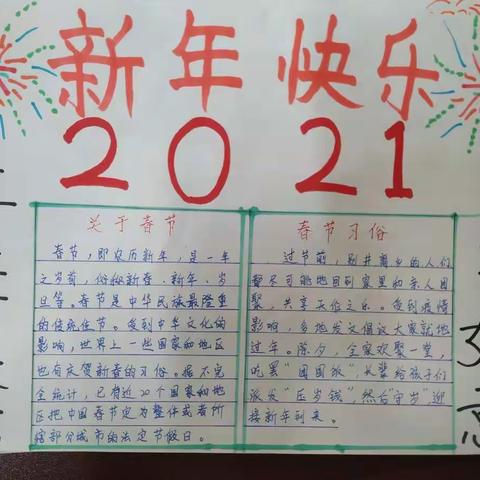 新年快乐
2021
关于春节
春节，即农历新年，是一年
之岁首，俗称新春、新年、岁
旦等。春节是中华民族最隆重
的传统佳节。受到中华文化的
影响，世界上一些国家和地区
也有庆贺新春的习俗。据不完
全统计，已有近20个国家和地
区把中国春节定为整体或者所
辖部分城市的法定节假日。
春节习俗
过节前，别井离乡的人们
都尽可能地回到家里和亲人团
聚，共享天伦之乐。受到疫情
影响，各地发文倡议大家就地
过年。除夕，全家欢聚一堂，
吃罢“团圆饭”，长辈给孩子们
派发“压岁钱”，然后“守岁”迎
接新年到来。
如
意